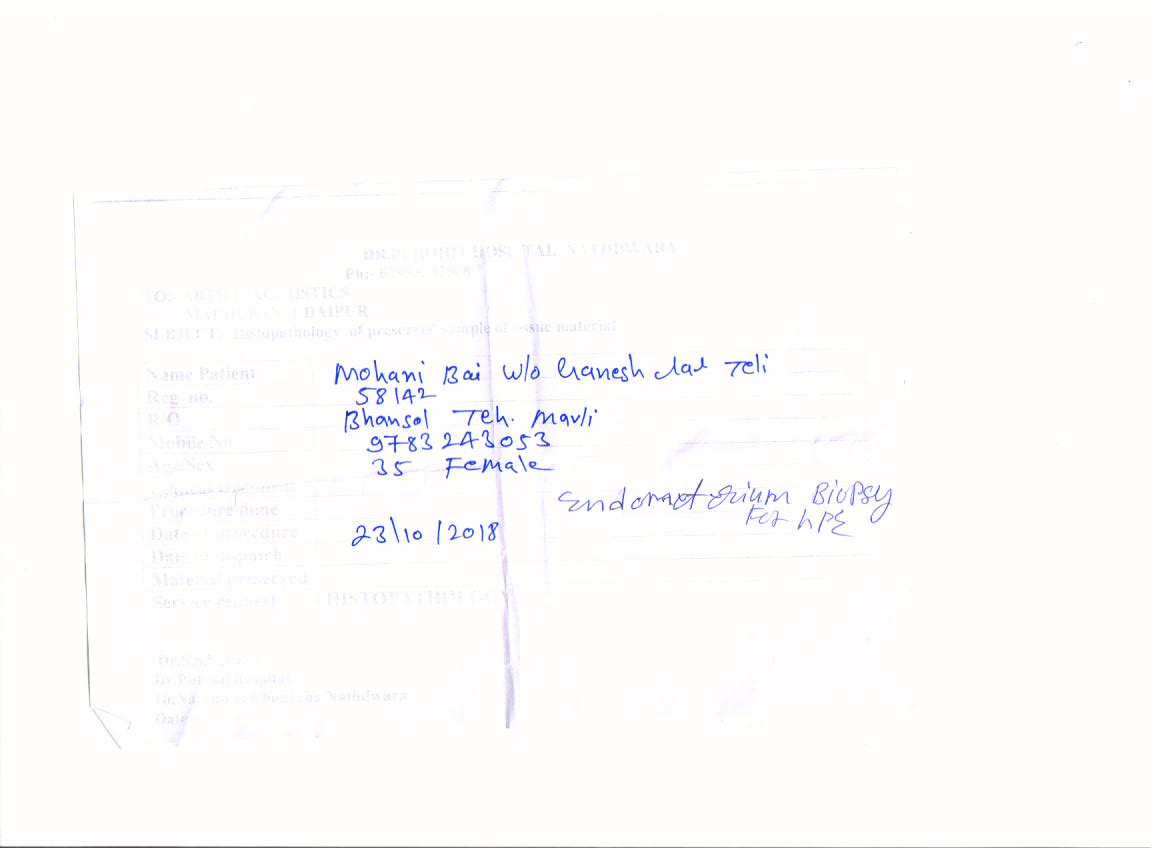 DR.PUROHIT HOSPITAL NATHDWARA
Ph:- 02953-232908
TO:- ARTH DIAGNOSTICS
MADHUBAN UDAIPUR
SUBJECT:- Histopathology of preserved sample of tissue material
Name Patient Mohani Bai w/o Ganesh Lal Teli
Reg no. 58142
R/O Bhansol Teh. Mavli
Mobile No 9783243053
Age/Sex 35 Female
Endomet orium Biopsy
Procedure done For hPE
Date of procedure 23\10/2018
Date of dispatch
Material preserved
Service request HISTOPATHOLOGY
Dr.S.S.
Dr.Purohit hospital
Nathdwara
Date